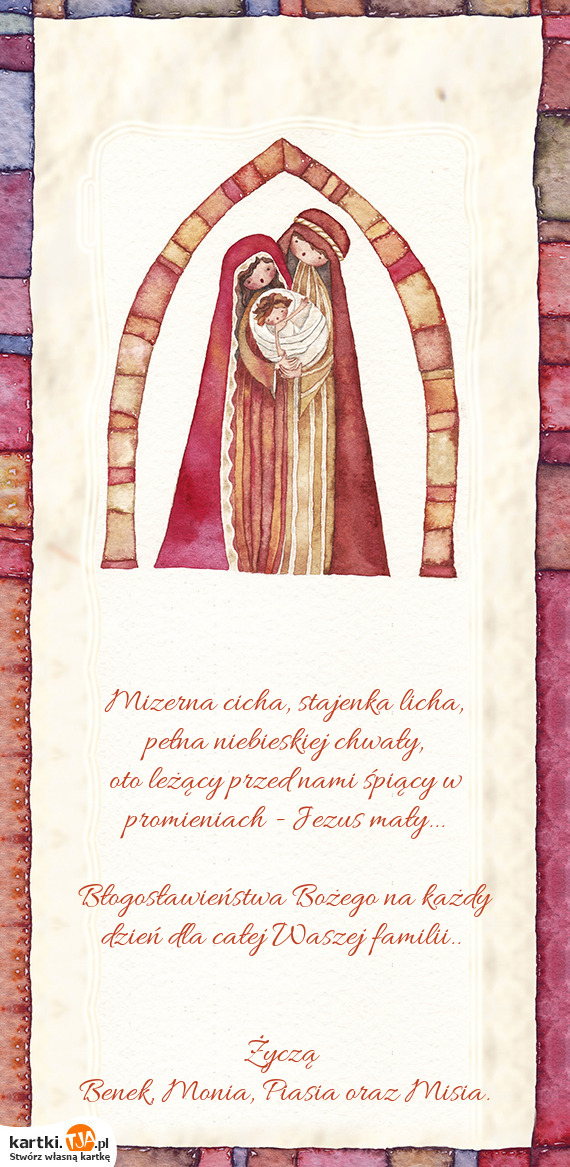 Mizerna cicha, stajenka licha,
pełna niebieskiej chwały,
oto leżący przed nami śpiący w
promieniach - Jezus mały...
Błogosławieństwa Bożego na każdy
dzień dla całej Waszej familii..
Życzą
Benek, Monia, Piasia oraz Misia.
kartki.TJA.pl
Stwórz własną kartkę